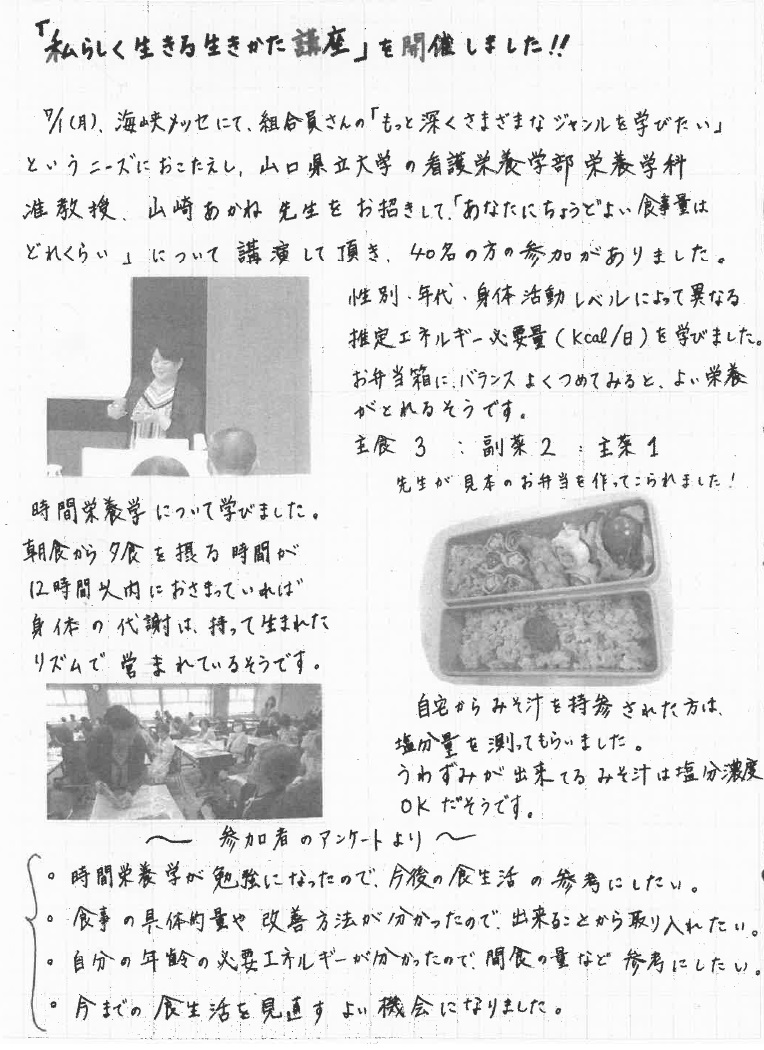 「私らしく生きる生きかた講座」を開催しました!!
7/1(月)、海峡メッセにて、組合員さんの「もっと深くさまざまなジャンルを学びたい」
というニーズにおこたえし、山口県立大学の看護栄養学部栄養学科
准教授、山崎あかね先生をお招きして、「あなたにちょうどよい食事量は
どれくらい」について講演して頂き、40名の方の参加がありました。
性別・年代・身体活動レベルによって異なる
推定エネルギー必要量(Kcal/日)を学びました。
お弁当箱に、バランスよくつめてみると、よい栄養
がとれるそうです。
主食3:副菜2:主菜1
先生が見本のお弁当を作ってこられました!
時間栄養学について学びました。
朝食から夕食を摂る時間が
12時間以内におさまっていれば
身体の代謝は、持って生まれた
リズムで営まれているそうです。
自宅からみそ汁を持参された方は、
塩分量を測ってもらいました。
うわずみが出来てるみそ汁は塩分濃度
OKだそうです。
〜参加者のアンケートより〜
。時間栄養学が勉強になったので、今後の食生活の参考にしたい。
。食事の具体的量や改善方法が分かったので、出来ることから取り入れたい。
。自分の年齢の必要エネルギーが分かったので、間食の量など参考にしたい。
。今までの食生活を見直すよい機会になりました。